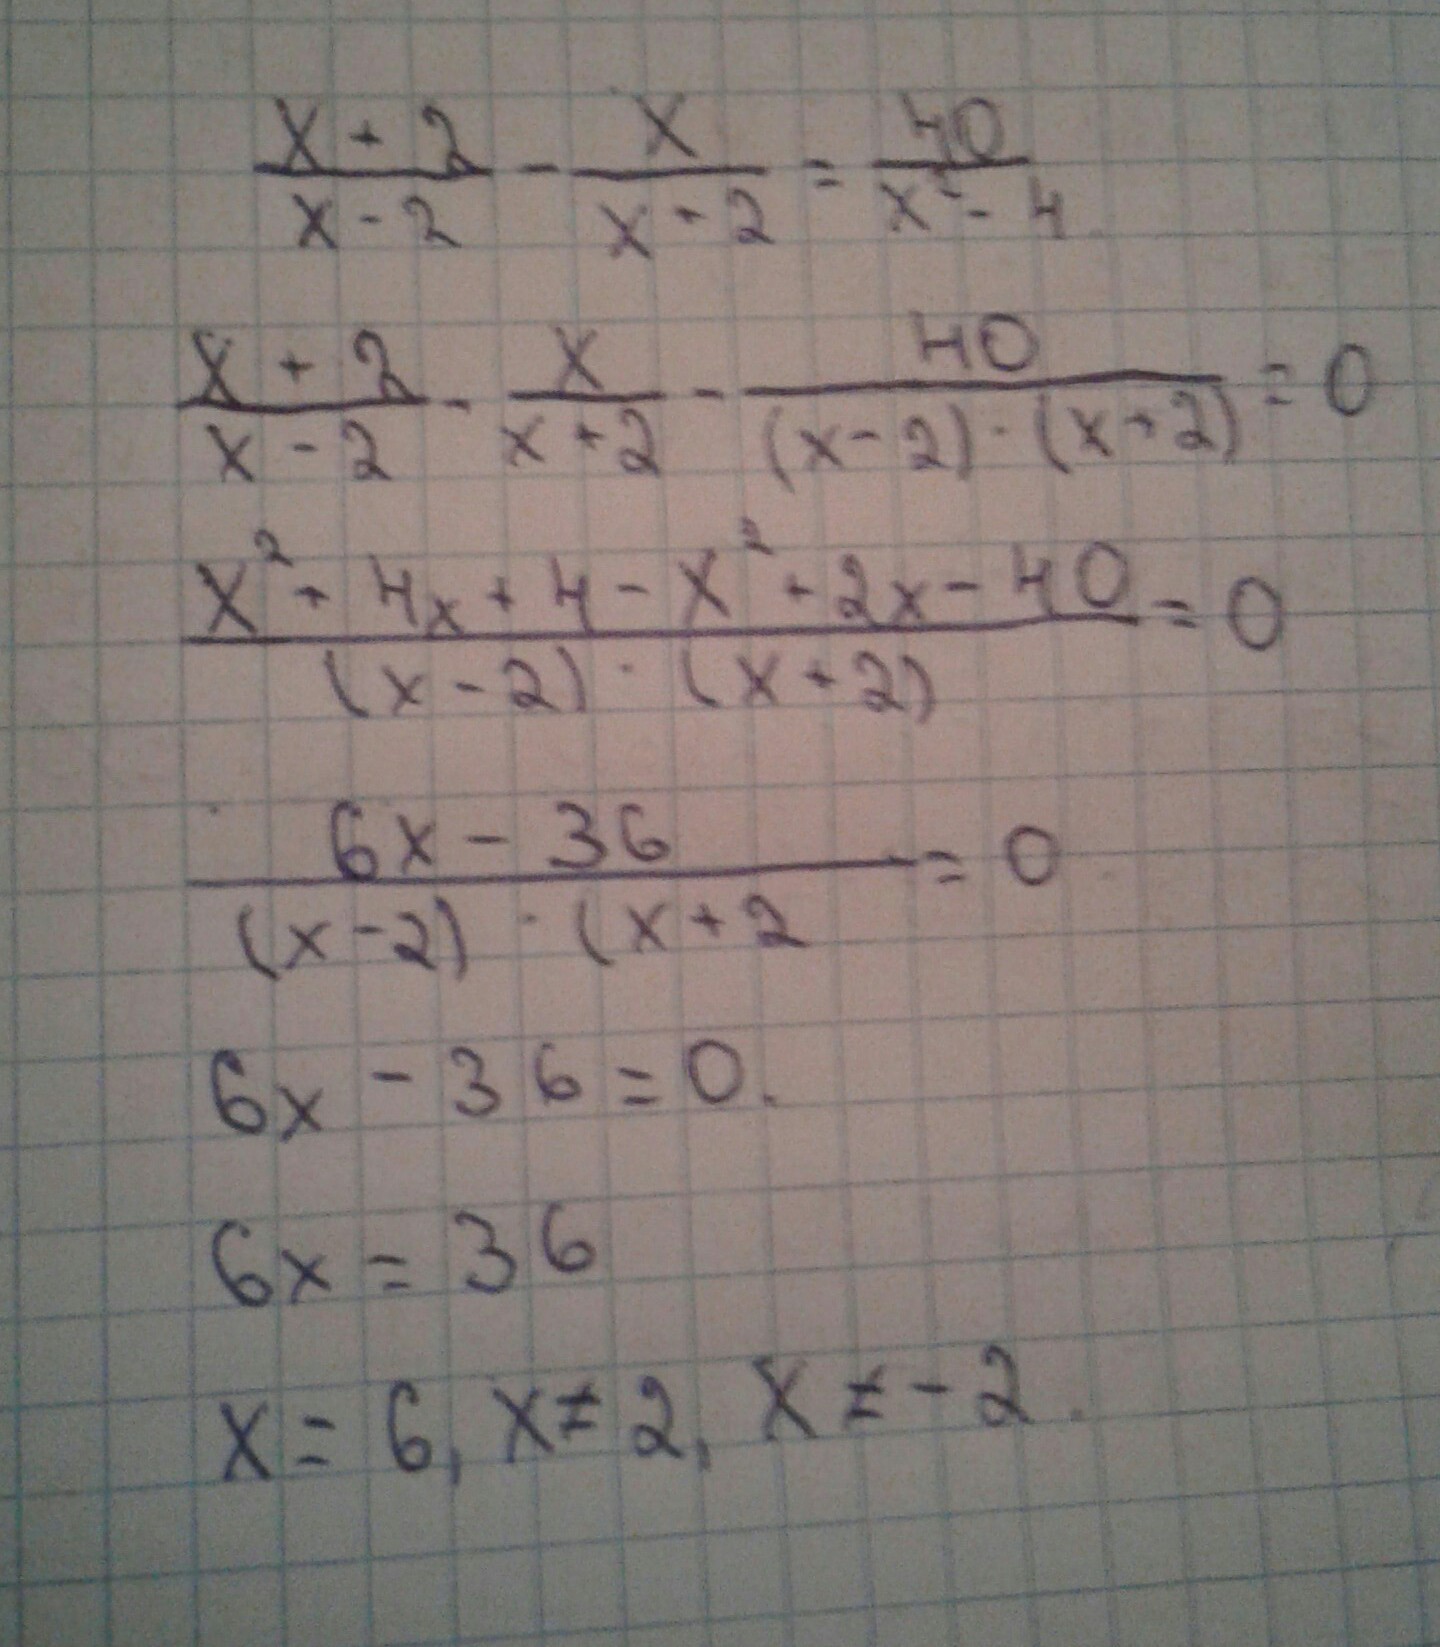 (x + 2)/(x - 2) - x/(x + 2) = 40/(x² - 4)
(x + 2)/(x - 2) - x/(x + 2) - 40/((x - 2) · (x + 2)) = 0
(x² + 4x + 4 - x² + 2x - 40)/((x - 2) · (x + 2)) = 0
(6x - 36)/((x - 2) · (x + 2) = 0
6x - 36 = 0.
6x = 36
x = 6, x ≠ 2, x ≠ -2.